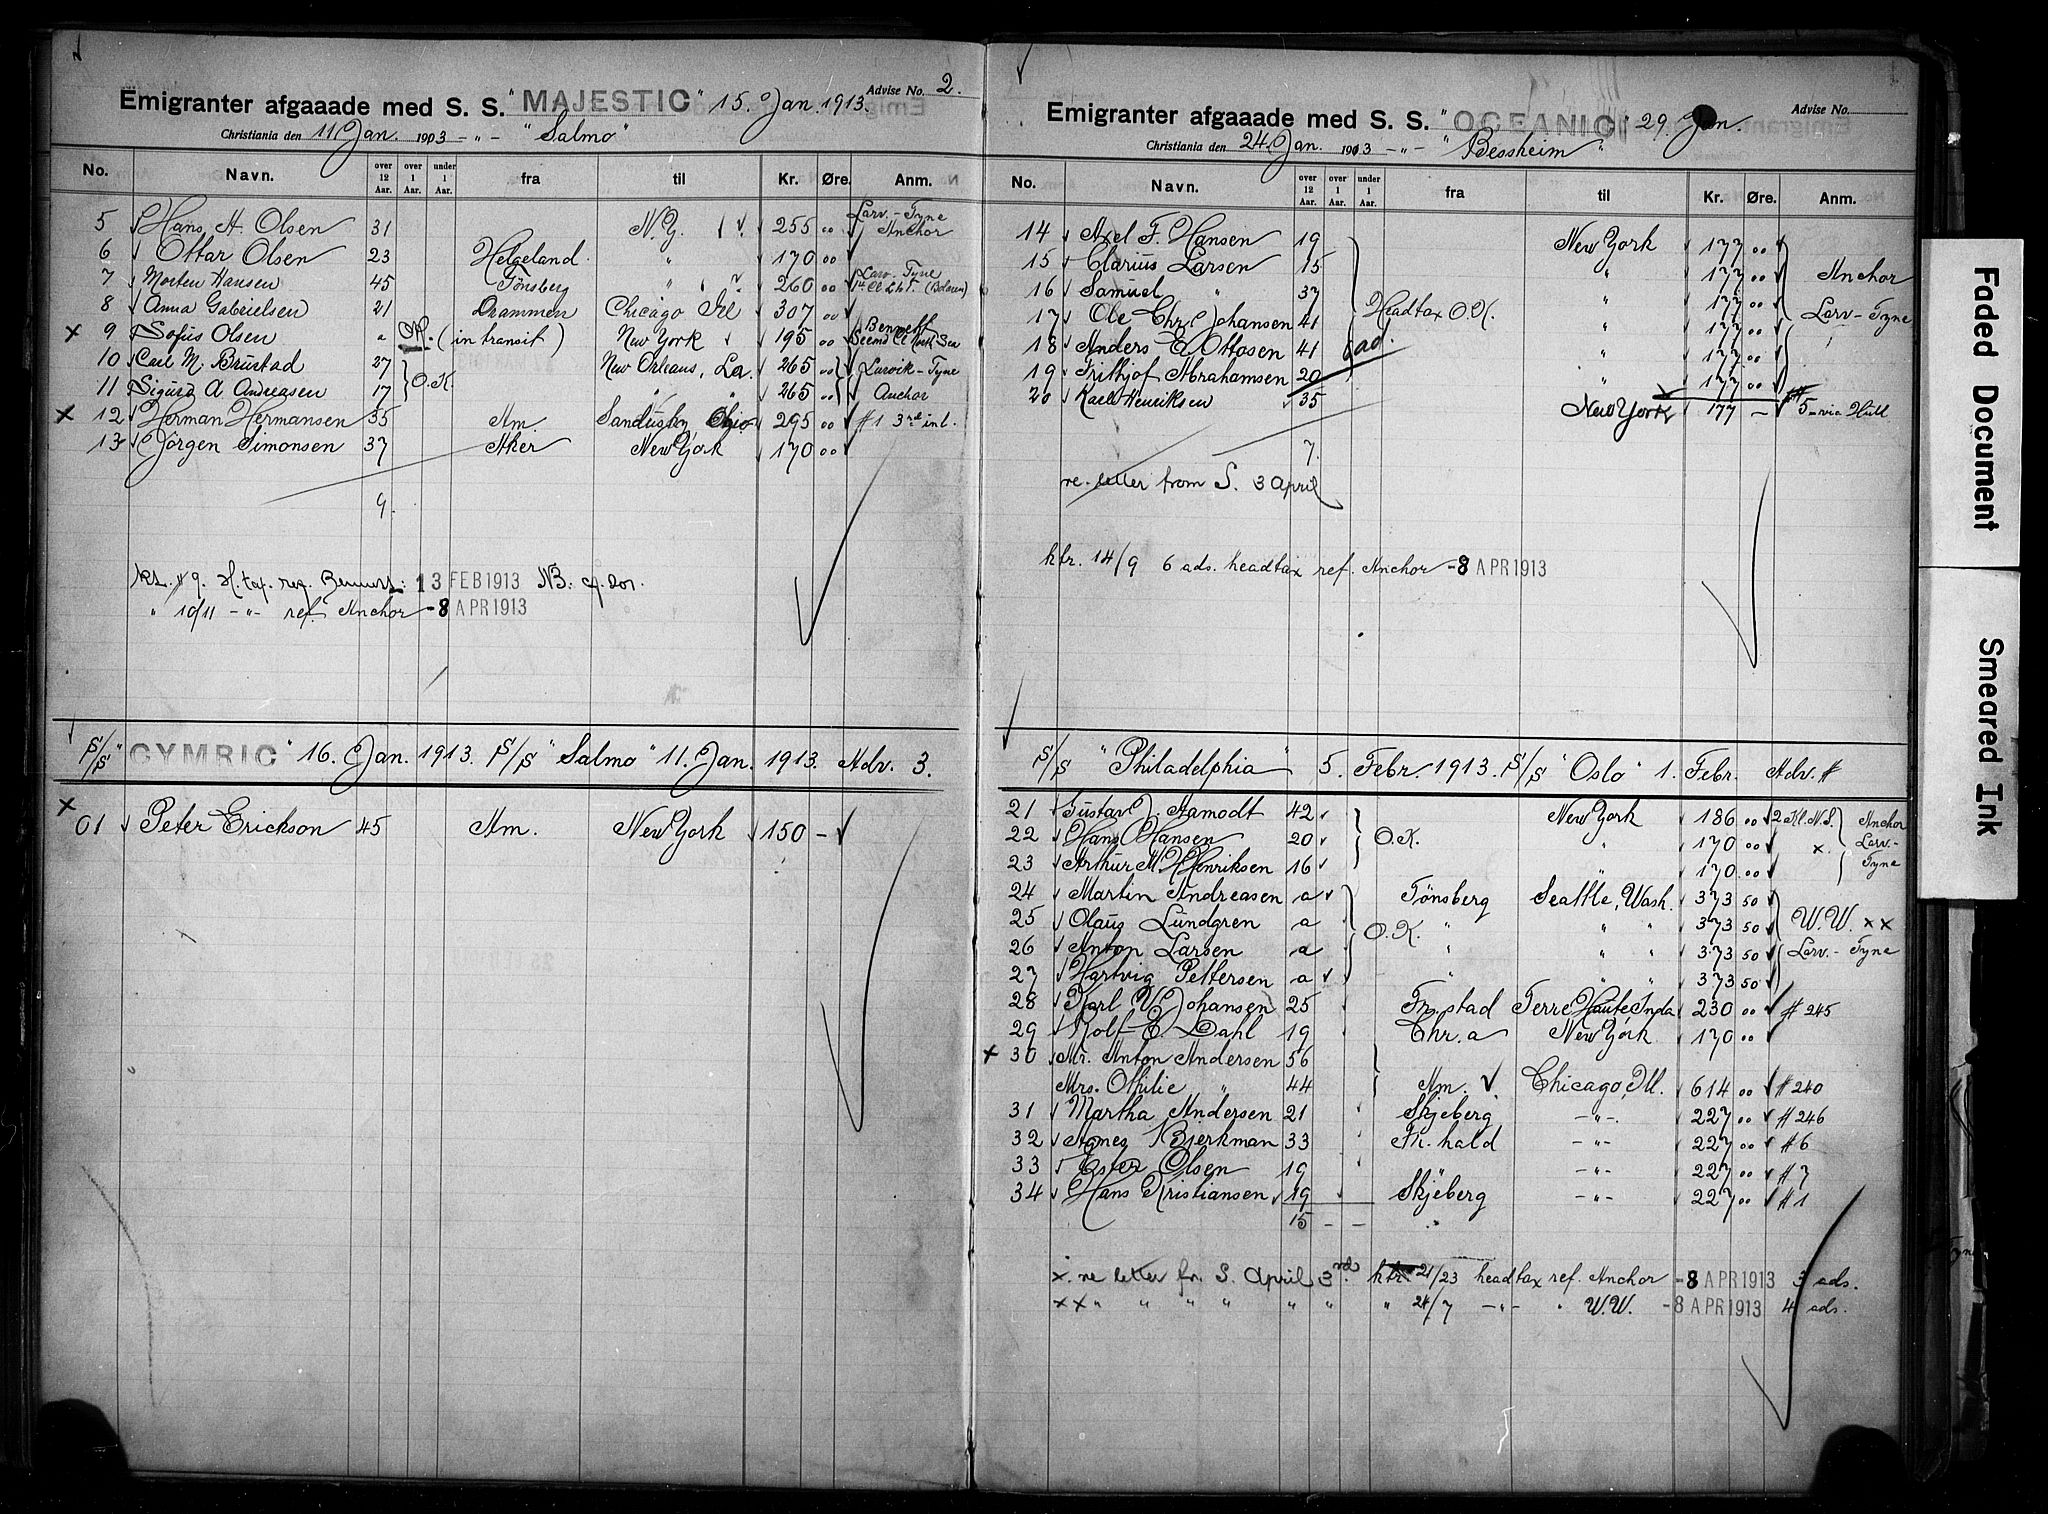 Emigranter afgaaade med S. S. "MAJESTIC" 15. Jan. 1913. Advise No. 2.
Christiania den 11 Jan. 1903 - " - "Salmo"
No. Navn. over 12 Aar. over 1 Aar. under 1 Aar. fra til Kr. Øre. Anm.
5 Hans A. Olsen 31 N.Y. 255 00 Larv.-Tyne Anchor
6 Ottar Olsen 23 Helgeland " 170 00
7 Morten Hansen 45 Tönsberg " 260 00 Larv. Tyne
8 Anna Gabrielsen 21 Drammen Chicago Ill 307 00
x 9 Sofus Olsen a (in transit) New York 195 00 Bennett
10 Carl M. Brustad 27 O.K. New Orleans, La. 265 00 Larvik-Tyne
11 Sigurd A Andreasen 17 " " 265 00 Anchor
x 12 Herman Hermansen 55 Am. Sandusky Ohio 295 00 #1 3rd int.
13 Jörgen Simonsen 37 Aker New York 170 00
9.
13 FEB 1913 NB.
" 10/11 - " - ref. Anchor -8 APR 1913
S/S "CYMRIC" 16. Jan. 1913. S/S "Salmo" 11. Jan. 1913. Adv. 3.
x 01 Peter Erickson 45 Am. New York 150 -
Emigranter afgaaade med S. S. "OCEANIC" 29. Jan. Advise No.
Christiania den 24. Jan. 1903 - " - "Bessheim"
No. Navn. over 12 Aar. over 1 Aar. under 1 Aar. fra til Kr. Øre. Anm.
14 Axel F. Hansen 19 New York 177 00
15 Clarius Larsen 15 " 177 00 Anchor
16 Samuel " 37 " 177 00
17 Ole Chr. Johansen 41 Headtax O.K. " 177 00 Larv-Tyne
18 Anders E. Ottosen 41 6 ad. " 177 00
19 Frithjof Abrahamsen 20 " 177 00
20 Karl Henriksen 35 New York 177 - #5 - via Hull
7.
re. letter from S. 3 April
ktr. 14/9 6 ads. headtax ref. Anchor -8 APR 1913
S/S "Philadelphia" 5. Febr. 1913. S/S "Oslo" 1. Febr. Adv. #
21 Gustav J. Aamodt 42 New York 186 00 2 Kl. N.S. Anchor
22 Hans Hansen 20 O.K. " 170 00 x. Larv.-
23 Arthur M. Henriksen 16 170 00 Tyne
24 Martin Andreasen a Tönsberg Seattle, Wash. 373 50
25 Olaus Lundgren a O.K. " " " 373 50 W.W. xx
26 Anton Larsen a " " " 373 50 Larv.-Tyne
27 Hartvig Pettersen a " " " 373 50
28 Karl V. Johansen 25 Fr.stad Terre Haute Inda 230 00 #245
29 Rolf E. Dahl 19 Chr.a New York 170 00
x 30 Mr. Anton Andersen 56
Mrs. Othilie " 44 Am. Chicago, Ill. 614 00 #240
31 Martha Andersen 21 Skjeberg - " - 227 00 #246
32 Agnes Bjerkman 33 Fr.hald - " - 227 00 #6
33 Ester Olsen 19 - " - 227 00 #7
34 Hans Kristiansen 19 Skjeberg - " - 227 00 #1
15 - -
x. re letter fr. S. April 3rd. ktr. 21/23 headtax ref. Anchor -8 APR 1913 3 ads.
xx " " " " " " " 24/7 - " - " W.W. -8 APR 1913 4 ads.
Faded Document
Smeared Ink